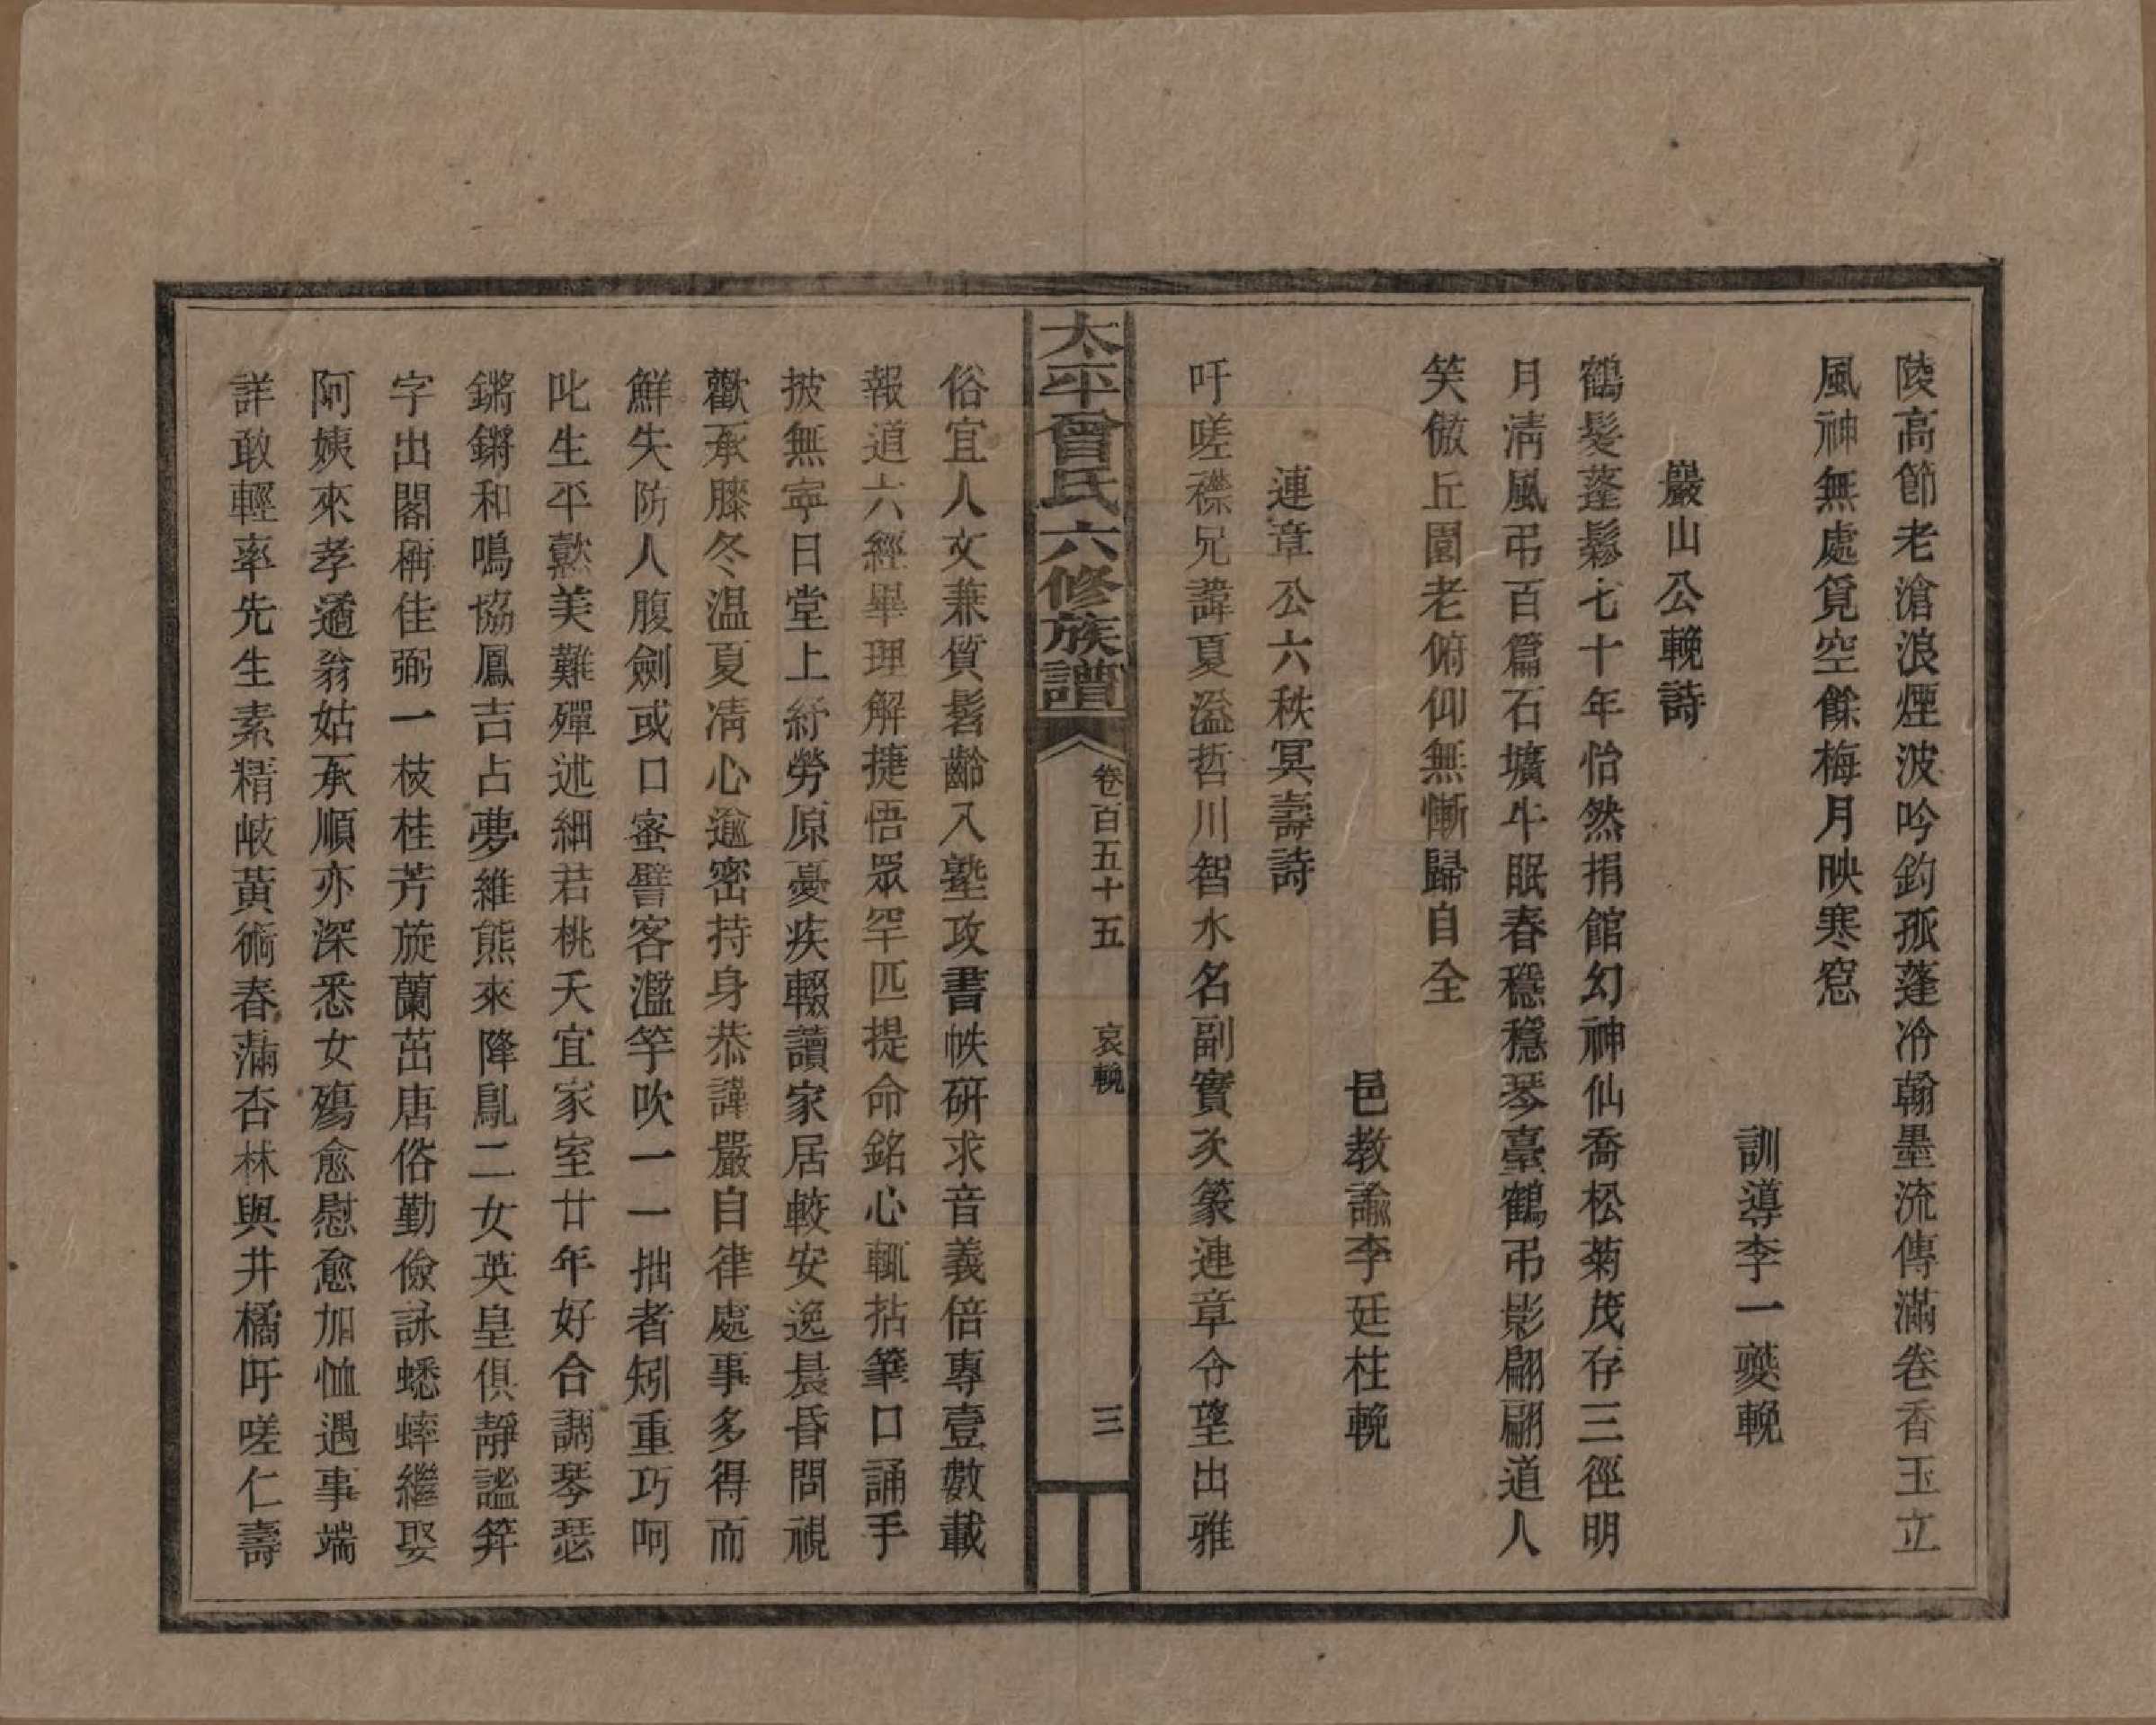 陵高節老滄浪煙波吟釣孤蓬冷翰墨流傳滿卷香玉立
風神無處覓空餘梅月映寒窓
訓導李一蘷輓
巖山公輓詩
鶴髮蓬鬆七十年怡然捐館幻神仙喬松菊茂存三徑明
月清風弔百篇石壙牛眠春穩穩琴臺鶴弔影翩翩道人
笑傲丘園老俯仰無慚歸自全
邑教諭李廷柱輓
連章公六秩冥壽詩
吁嗟襟兄諱夏溢哲川智水名副實次篆連章令望出雅
太平曾氏六修族譜
卷百五十五 哀輓 三
俗宜人文兼質髫齡入塾攻書帙研求音義倍專壹數載
報道六經畢理解捷悟眾罕匹提命銘心輒拈筆口誦手
披無寧日堂上紓勞原憂疾輟讀家居較安逸晨昏問視
歡承膝冬温夏凊心逾密持身恭謹嚴自律處事多得而
鮮失防人腹劍或口蜜譬客濫竽吹一一拙者矧重巧呵
叱生平懿美難殫述細君桃夭宜家室廿年好合調琴瑟
鏘鏘和鳴協鳳吉占夢維熊來降亂二女英皇俱靜謐笄
字出閣稱佳弼一枝桂芳旋蘭茁唐俗勤儉詠蟋蟀繼娶
阿姨來孝遹翁姑承順亦深悉女殤愈慰愈加恤遇事端
詳敢輕率先生素精岐黃術春滿杏林與井橘吁嗟仁壽